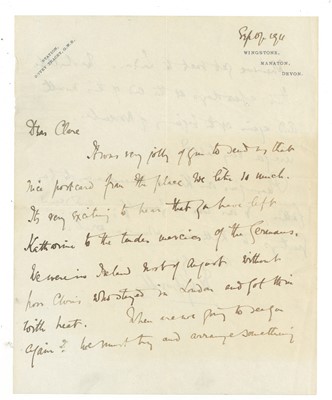 STATION,
BOVEY TRACEY, G.W.R.
Sep 07. 1911
WINGSTONE,
MANATON,
DEVON.
Dear Clare
It was very jolly of you to send us that
nice postcard from the place we like so much.
Its very exciting to hear that you have left
Katharine to the tender mercies of the Germans.
We were in Ireland most of August without
poor Chris who stayed in London and got thin
with heat. When are we going to see you
again? We must try and arrange something